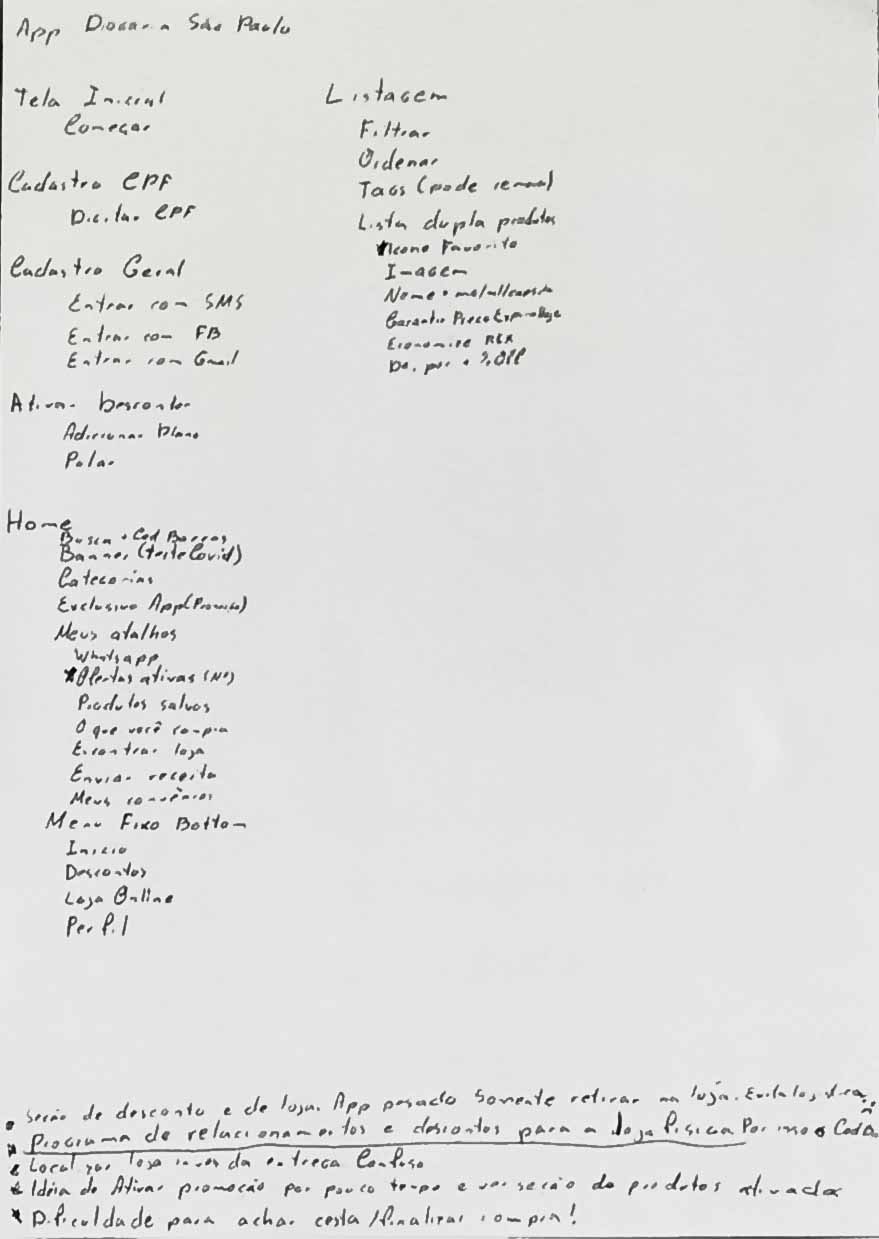 App Drogaria São Paulo
Tela Inicial
Começar
Cadastro CPF
Digitar CPF
Cadastro Geral
Entrar com SMS
Entrar com FB
Entrar com Gmail
Ativar Descontos
Adicionar Plano
Pular
Home
Busca + Cod Barras
Banner (teste Covid)
Categorias
Exclusivo App
Meus atalhos
Whatsapp
* Ofertas ativas (Nº)
Produtos salvos
O que você compra
Encontrar loja
Enviar receita
Meus convênios
Menu Fixo Bottom
Início
Descontos
Loja Online
Perfil
Listagem
Filtrar
Ordenar
Tags (pode remover)
Lista dupla produtos
Icone Favorito
Imagem
Nome +
Garantir Preço
Economize R$X
De, por + %OFF
* Seção de desconto e de loja. App pesado Somente retirar na loja.
* Programa de relacionamentos e descontos para a loja física Por isso o Cod B.
* Local por loja invés da entrega Confuso
* Idéia de Ativar promoção por pouco tempo e ver seção de produtos ativados
* Dificuldade para achar cesta / finalizar compra!